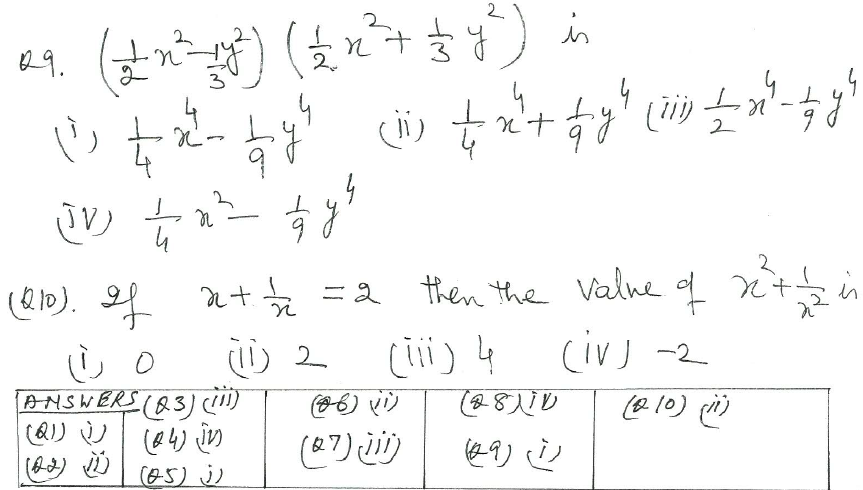 Q9. (1/2 x² - 1/3 y²) (1/2 x² + 1/3 y²) is
(i) 1/4 x⁴ - 1/9 y⁴ (ii) 1/4 x⁴ + 1/9 y⁴ (iii) 1/2 x⁴ - 1/9 y⁴
(iv) 1/4 x² - 1/9 y⁴
(Q10). If x + 1/x = 2 then the value of x² + 1/x² is
(i) 0 (ii) 2 (iii) 4 (iv) -2
ANSWERS
(Q1) i)
(Q2) ii)
(Q3) (iii)
(Q4) iv)
(Q5) i)
(Q6) ii)
(Q7) (iii)
(Q8) iv)
(Q9) i)
(Q10) (ii)